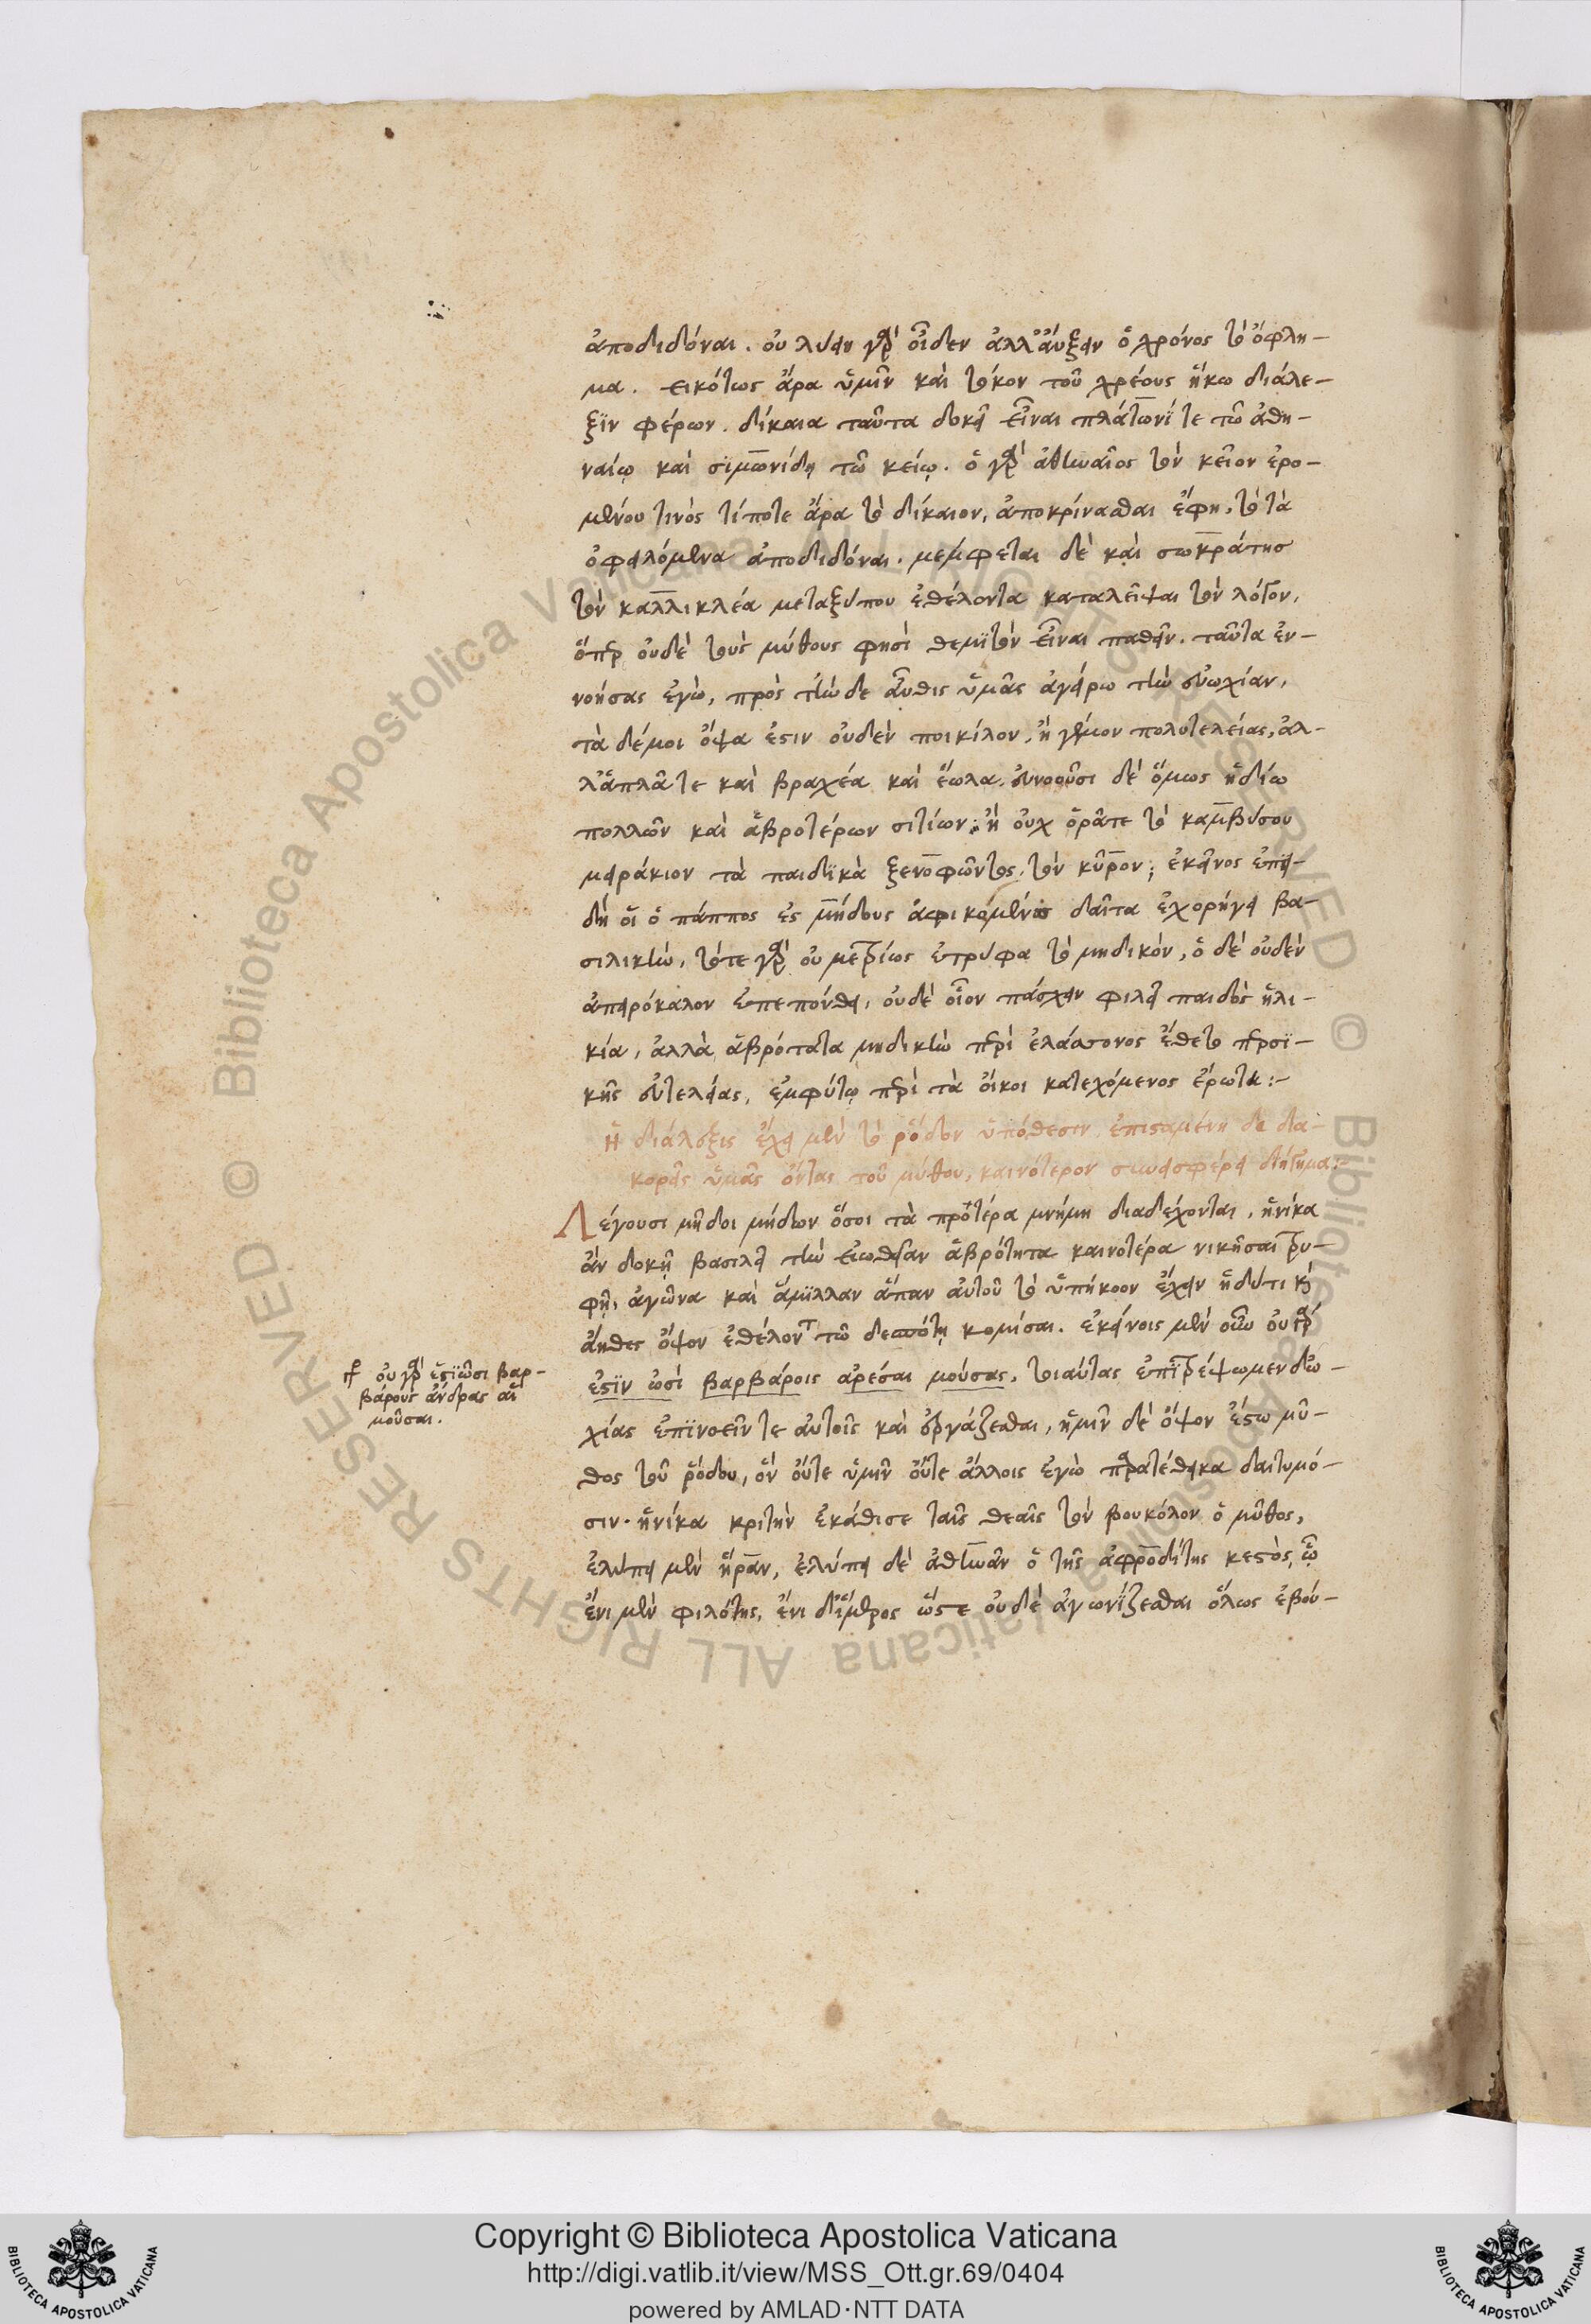 ἀποδιδόναι. οὐ λύειν γὰρ οἶδεν ἀλλ' αὔξειν ὁ χρόνος τὸ ὄφλη-
μα. εικότως ἄρα ὑμῖν καὶ τόκον τοῦ χρέους ἥκω διάλε-
ξιν φέρων. δίκαια ταῦτα δοκεῖ εἶναι πλάτωνί τε τῶ ἀθη-
ναίῳ καὶ σιμωνίδη τῶ κείῳ. ὁ γὰρ ἀθηναῖος τὸν κεῖον ἐρο-
μένου τινὸς τίποτε ἄρα τὸ δίκαιον, ἀποκρίνασθαι ἔφη, τὸ τὰ
ὀφειλόμενα ἀποδιδόναι. μέμφεται δὲ καὶ σωκράτης
τὸν καλλικλέα μεταξύπου ἐθέλοντα καταλεῖψαι τὸν λόγον,
ὅπερ οὐδὲ τοὺς μύθους φησὶ θεμιτὸν εἶναι παθεῖν. ταῦτα ἐν-
νοήσας ἐγὼ, πρὸς τήνδε αὖθις ὑμᾶς ἀγείρω τὴν εὐωχίαν,
τὰ δέμοι ὄψα ἐστιν οὐδὲν ποικίλον, ἢ γέμον πολυτελείας, ἀλ-
λ' ἁπλᾶ τε καὶ βραχέα καὶ ἕωλα. εὐνοοῦσι δὲ ὅμως ἡδίω
πολλῶν καὶ ἁβροτέρων σιτίων· ἢ οὐχ ὁρᾶτε τὸ καμβύσου
μειράκιον τὰ παιδικὰ ξενοφῶντος, τὸν κῦρον; ἐκεῖνος ἐπει-
δή οἱ ὁ πάππος ἐς μήδους ἀφικομένῳ δαῖτα ἐχορήγει βα-
σιλικὴν, τότε γὰρ οὐ μετρίως ἐτρύφα τὸ μηδικόν, ὁ δὲ οὐδὲν
ἀπειρόκαλον ἐπεπόνθει, οὐδὲ οἷον πάσχειν φιλεῖ παιδὸς ἡλι-
κία, ἀλλὰ ἁβρότητα μηδικὴν περὶ ἐλάσσονος ἔθετο περσι-
κῆς εὐτελείας, ἐμφύτῳ περὶ τὰ οἴκοι κατεχόμενος ἔρωτι:-
Ἡ διάλεξις ἔχει μὲν τὸ ῥόδον ὑπόθεσιν. ἐπισταμένη δε δια-
κορεῖς ὑμᾶς ὄντας τοῦ μύθου, καινότερον συνεισφέρει διήγημα:
Λέγουσι μῆδοι μήδων ὅσοι τὰ πρότερα μνήμη διαδέχονται, ἡνίκα
ἂν δοκῇ βασιλεῖ τὴν εἰωθυῖαν ἁβρότητα καινοτέρα νικῆσαι τρυ-
φῇ, ἀγῶνα καὶ ἅμιλλαν ἅπαν αὐτοῦ τὸ ὑπήκοον ἔχειν ἡδύτι καὶ
ἄηθες ὄψον ἐθέλοντ τῶ δεσπότῃ κομίσαι. ἐκείνοις μὲν οὖν οὐ γὰρ
ἐστιν ὡσὶ βαρβάροις ἀρέσαι μούσας, τοιαύτας ἐπιτρέψωμεν εὐω-
χίας ἐπινοεῖν τε αὐτοῖς καὶ ἐργάζεσθαι, ἡμῖν δὲ ὄψον ἔστω μῦ-
θος τοῦ ῥόδου, ὃν οὔτε ὑμῖν οὔτε ἄλλοις ἐγὼ παρατέθεικα δαιτυμό-
σιν. ἡνίκα κριτὴν ἐκάθισε ταῖς θεαῖς τὸν βουκόλον ὁ μῦθος,
ἐλύπει μὲν ἥραν, ἐλύπει δὲ ἀθηνᾶν ὁ τῆς ἀφροδίτης κεστὸς, ᾧ
ἔνι μὲν φιλότης, ἔνι δ' ἵμερος ὥστε οὐδὲ ἀγωνίζεσθαι ὅλως ἐβού-
οὐ γὰρ ἐστιῶσι βαρ-
βάρους ἄνδρας αἱ
μοῦσαι.
Copyright © Biblioteca Apostolica Vaticana
http://digi.vatlib.it/view/MSS_Ott.gr.69/0404
powered by AMLAD·NTT DATA
BIBLIOTECA APOSTOLICA VATICANA
BIBLIOTECA APOSTOLICA VATICANA
© Biblioteca Apostolica Vaticana ALL RIGHTS RESERVED © Biblioteca Apostolica Vaticana ALL RIGHTS RESERVED